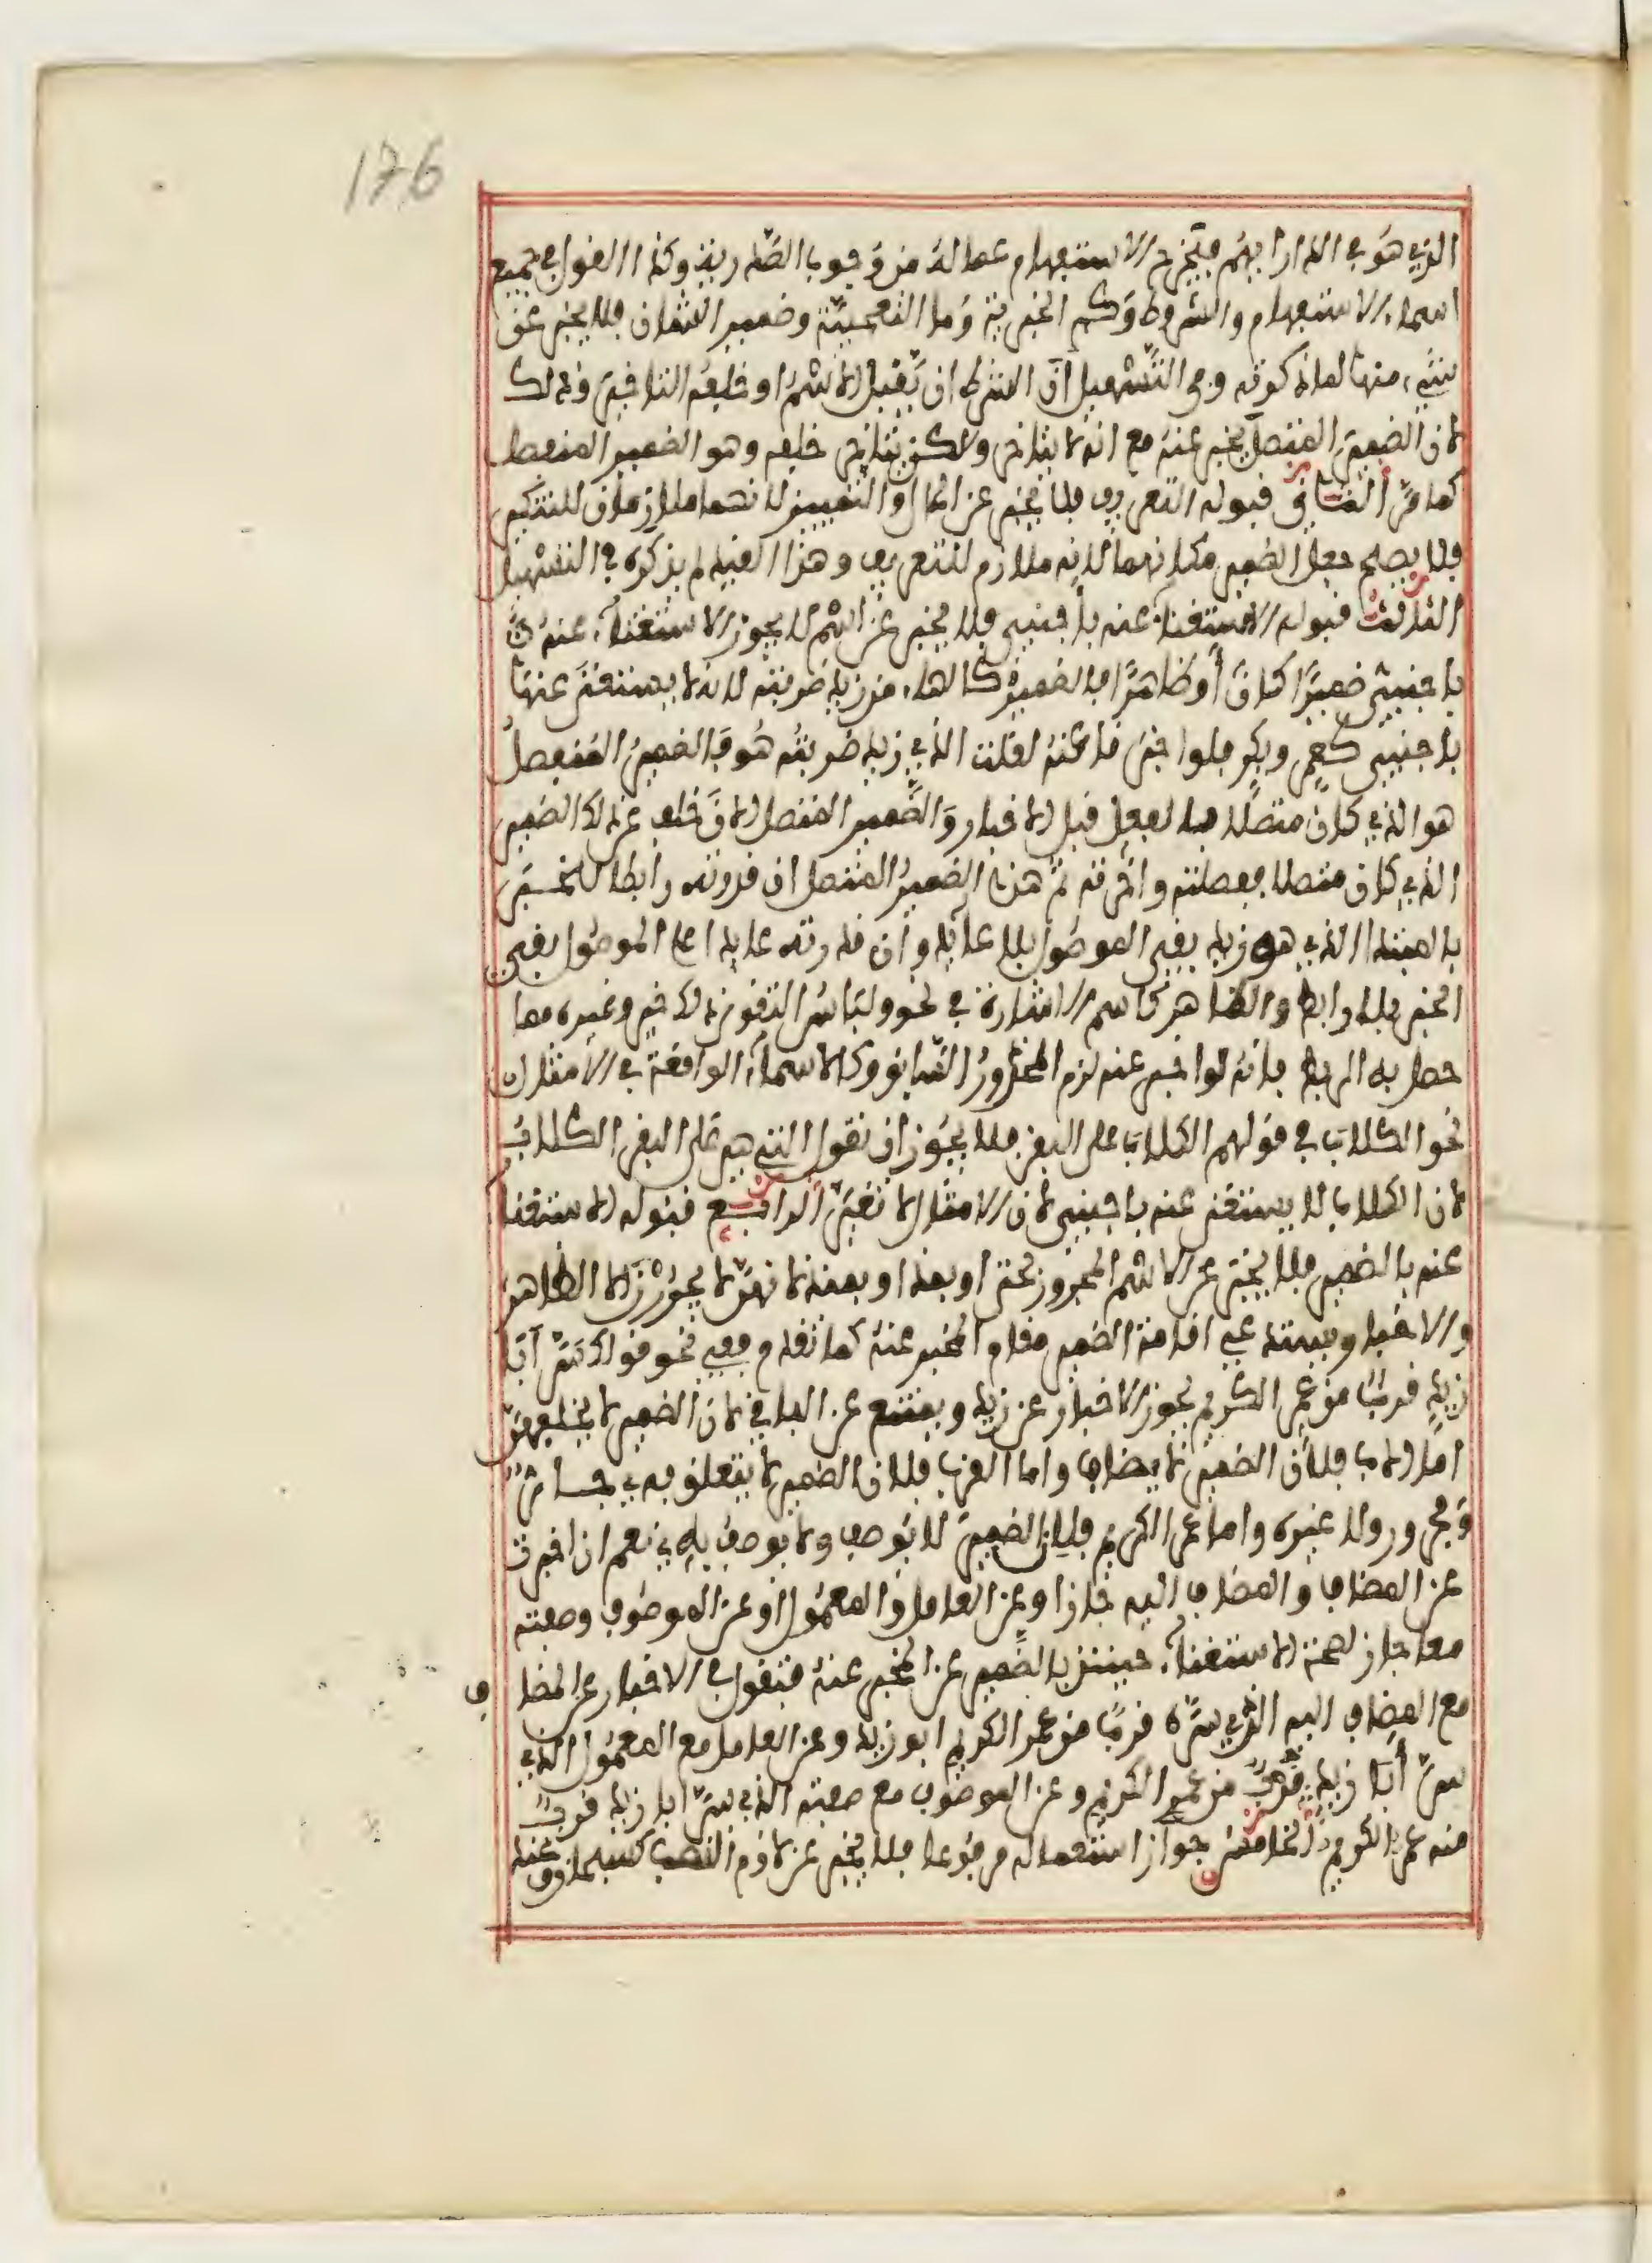 176
الذي هو في الدار ايهم فتخرج الاستفهام عما له من وجوب الصدرية وكذا القول في جميع
اسماء الاستفهام والشروط وكم الخبرية وما التعجبية وضمير الشان فلا يخبر عن
شيء منها لما ذكرته وفي التسهيل ان الشرط ان يقبل الاسم او خلفه التاخير وذلك
لان الضمير المتصل يخبر عنه مع انه لا يتاخر ولكن يتاخر خلفه وهو الضمير المنفصل
كما مر الثاني قبوله التعريف فلا يخبر عن الحال والتمييز لانهما ملازمان للتنكير
فلا يصلح جعل الضمير مكانهما لانه ملازم للتعريف وهذا القيد لم يذكره في التسهيل
الثالث قبوله الاستغناء عنه باجنبي فلا يخبر عن اسم لا يجوز الاستغناء عنه
باجنبي ضميرا كان أو ظاهرا فالضمير كالهاء من زيد ضربته لانه لا يستغنى عنها
باجنبي كعمرو وبكر فلو اخبرت عنه لقلت الذي زيد ضربته هو فالضمير المنفصل
هو الذي كان متصلا بالفعل قبل الاخبار والضمير المتصل الان خلف عن ذلك الضمير
الذي كان متصلا ففصلته واخرته ثم هذا الضمير المتصل ان قدرته رابطا للخبر
بالمبتدا الذي هو زيد بقي الموصول بلا عائد وان قدرته عائدا على الموصول بقي
الخبر بلا رابط والظاهر كاسم الاشارة في نحو ولباس التقوى ذلك خير وغيره مما
حصل به الربط فانه لو اخبر عنه لزم المحذور السابق وكالاسماء الواقعة في الامثال
نحو الكلاب في قولهم الكلاب على البقر فلا يجوز ان تقول التي هي على البقر الكلاب
لان الكلاب لا يستغنى عنه باجنبي لان الامثال لا تغير الرابع قبوله الاستغنا
عنه بالضمير فلا يخبر عن الاسم المجرور بحتى او بمذ او بمنذ لانهن لا يجررن الا الظاهر
والاخبار يستدعي اقامة الضمير مقام المخبر عنه كما تقدم ففي نحو قولك سر ابا
زيد قرب من عمرو الكريم يجوز الاخبار عن زيد ويمتنع عن الباقي لان الضمير لا يخلفهن
اما الاب فلان الضمير لا يضاف واما القرب فلان الضمير لا يتعلق به جار
ومجرور ولا غيره واما عمرو الكريم فلان الضمير لا يوصف ولا يوصف به نعم ان اخبرت
عن المضاف والمضاف اليه جاز او عن العامل والمعمول او عن الموصوف وصفته
معا جاز لصحة الاستغناء حينئذ بالضمير عن المخبر عنه فتقول في الاخبار عن المضا
ف
مع المضاف اليه الذي سره قرب من عمرو الكريم ابو زيد وعن العامل مع المعمول الذي
سر أبا زيد قرب من عمرو الكريم وعن الموصوف مع صفته الذي سر ابا زيد قرب
منه عمرو الكريم الخامس جواز استعماله مرفوعا فلا يخبر عن لازم النصب كسبحان وعند